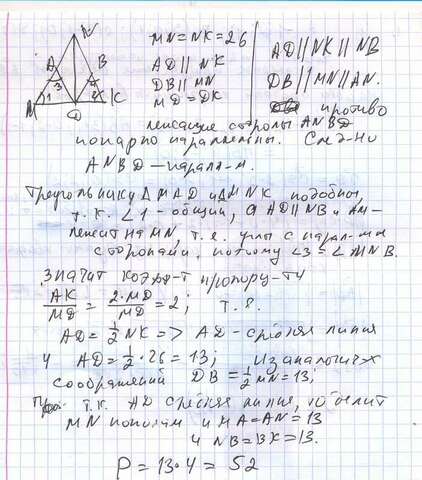 N
A
B
3
1
2
M
D
K
MN=NK=26
AD || NK
DB || MN
MD=DK
AD||NK||NB
DB||MN||AN.
противо
лежащие стороны ANBD
попарно параллельны. След-но
ANBD – парал-м.
Треугольники ΔMAD и ΔMNK подобны,
т.к. ∠1 – общий, а AD||NB и AM –
лежит на MN, т.е. углы с парал-ми
сторонами, потому ∠3=∠MNB.
Значит коэфф-т пропор-ти
AK/MD = 2·MD/MD = 2; т.е.
AD=½NK => AD – средняя линия
и AD=½·26=13; Из аналогичных
соображений DB=½MN=13;
т.к. AD средняя линия, то делит
MN пополам и MA=AN=13
и NB=BK=13.
P=13·4=52